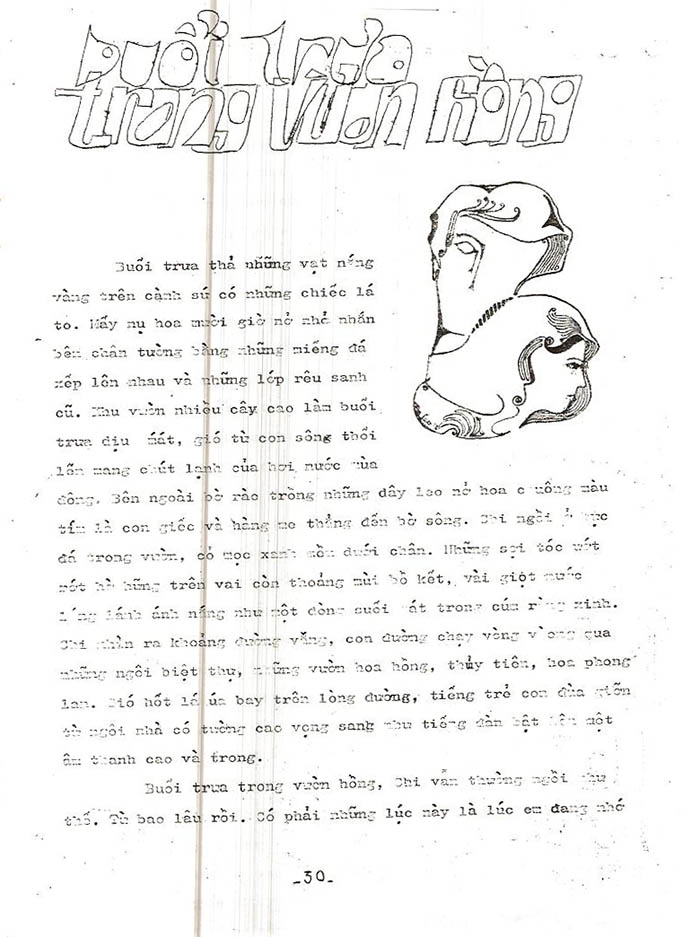 Buổi trưa
trong vườn hồng
Buổi trưa thả những vạt nắng
vàng trên cành sứ có những chiếc lá
to. Mấy nụ hoa mười giờ nở nhỏ nhắn
bên chân tường bằng những miếng đá
xếp lên nhau và những lớp rêu xanh
cũ. Khu vườn nhiều cây cao làm buổi
trưa dịu mát, gió từ con sông thổi
lên mang chút lạnh của hơi nước mùa
đông. Bên ngoài bờ rào trồng những dây leo nở hoa chuông màu
tím là con giốc và hàng me thẳng đến bờ sông. Chi ngồi ở bực
đá trong vườn, cỏ mọc xanh mềm dưới chân. Những sợi tóc ướt
hờ hững trên vai còn thoảng mùi bồ kết, vài giọt nước
lóng lánh ánh nắng như một dòng suối mát trong xinh.
Chi nhìn ra khoảng đường vắng, con đường chạy vòng vòng qua
những ngôi biệt thự, những vườn hoa hồng, thủy tiên, hoa phong
lan. Gió hốt lá úa bay trên lòng đường, tiếng trẻ con đùa giỡn
từ ngôi nhà có tường cao vọng sang như tiếng đàn bật lên một
âm thanh cao và trong.
Buổi trưa trong vườn hồng, Chi vẫn thường ngồi như
thế. Từ bao lâu rồi. Có phải những lúc này là lúc em đang nhớ
-30-